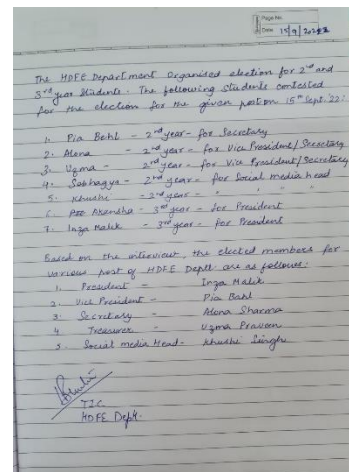 Page No.
Date 15/9/2022
The HDFE Department Organised election for 2nd and
3rd year Students. The following students contested
for the election for the given post on 15th Sept.'22:
1. Pia Bahl - 2nd year - for Secretary
2. Alena - 2nd year - for Vice President/Secretary
3. Uzma - 2nd year - for Vice President/Secretary
4. Sobhagya - 2nd year - for Social media head
5. Khushi - 2nd year - " " "
6. Akansha - 3rd year - for President
7. Inza Malik - 3rd year - for President
Based on the interview, the elected members for
various post of HDFE Deptt. are as follows:-
1. President - Inza Malik
2. Vice President - Pia Bahl
3. Secretary - Alena Sharma
4 Treasurer - Uzma Praveen
5. Social media Head - Khushi Singh
TIC
HDFE Deptt.